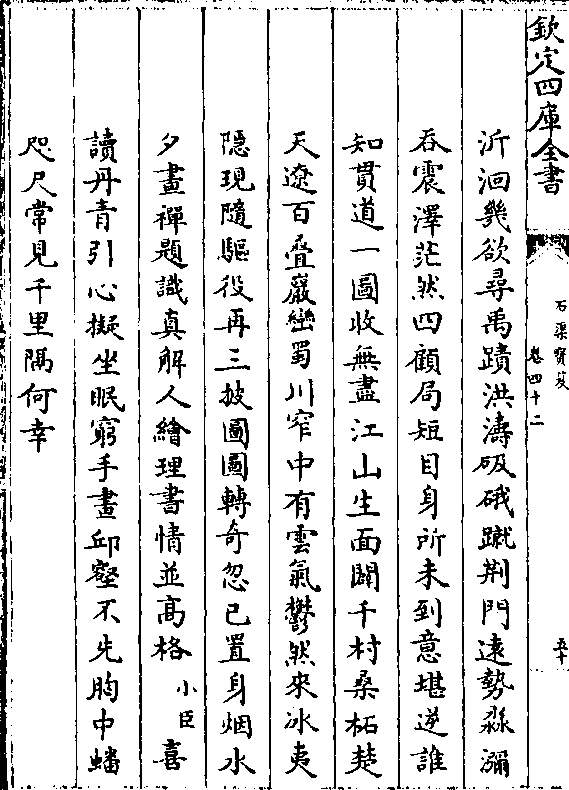 欽定四庫全書
石渠寶笈
卷四十二
五十
沂洄幾欲尋禹蹟洪濤砐硪蹴荆門逺勢淼瀰
吞震澤茫然四顧局短目身所未到意堪逆誰
知貫道一圖收無盡江山生面闢千村桑柘楚
天遼百疊巖巒蜀川窄中有雲氣鬱然來冰夷
隠現隨驅役再三披圖圖轉奇忽已置身烟水
夕畫禪題識真解人繪理書情並髙格小臣喜
讀丹青引心擬坐眠窮手畫邱壑不先胸中蟠
咫尺常見千里隅何幸